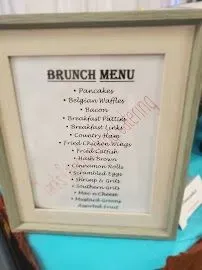 BRUNCH MENU
• Pancakes
• Belgian Waffles
• Bacon
• Breakfast Patties
• Breakfast Links
• Country Ham
• Fried Chicken Wings
• Fried Catfish
• Hash Brown
• Cinnamon Rolls
• Scrambled Eggs
• Shrimp & Grits
• Southern Grits
• Mac n Cheese
• Mustard Greens
Assorted Fruit